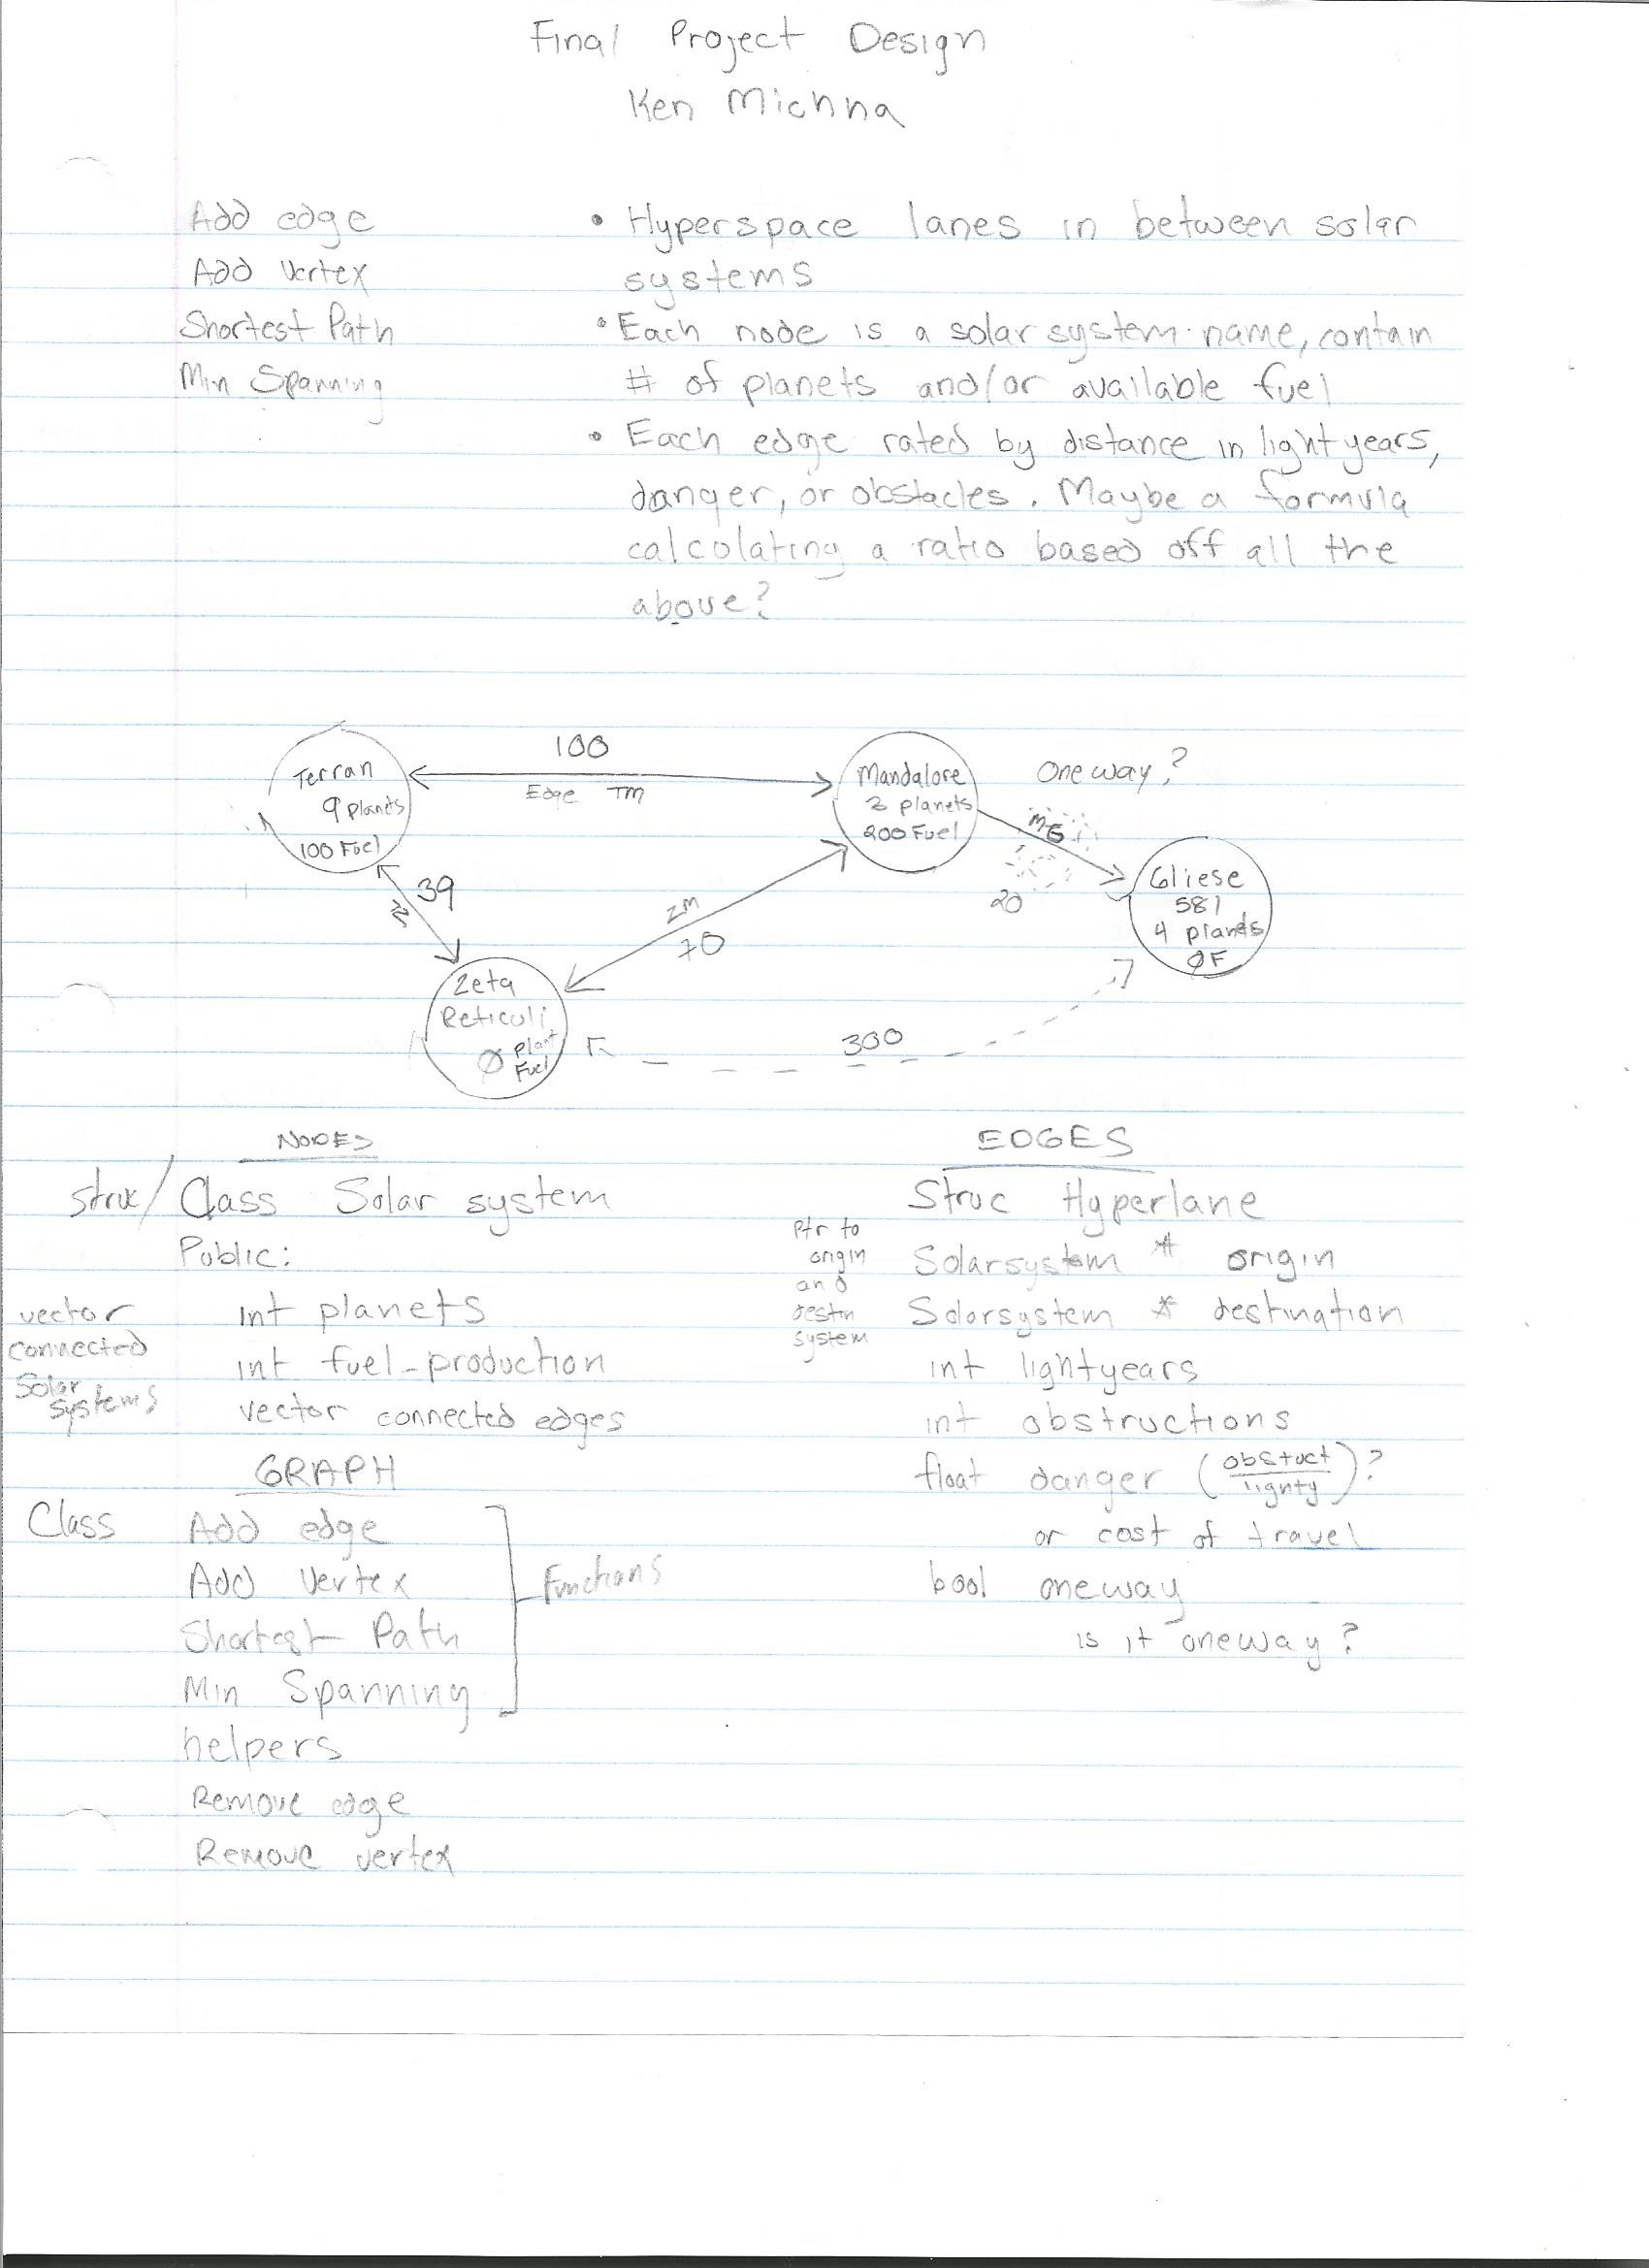 Final Project Design
Ken Michna
Add edge
Add Vertex
Shortest Path
Min Spanning
• Hyperspace lanes in between solar
systems
• Each node is a solar system name, contain
# of planets and/or available fuel
• Each edge rated by distance in lightyears,
danger, or obstacles. Maybe a formula
calculating a ratio based off all the
above?
Terran
9 planets
100 Fuel
100
Edge TM
Mandalore
3 planets
200 Fuel
One way?
MG
20
Gliese
581
4 planets
ØF
39
TZ
ZM
70
Zeta
Reticuli
Ø plant
Fuel
300
NODES
struc/Class Solar system
Public:
int planets
int fuel_production
vector connected edges
vector
connected
Solar
systems
GRAPH
Class
Add edge
Add Vertex
Shortest Path
Min Spanning
Functions
helpers
Remove edge
Remove vertex
EDGES
Struc Hyperlane
Solarsystem * origin
Solarsystem * destination
ptr to
origin
and
destn
system
int lightyears
int obstructions
float danger (obstuct/lighty)?
or cost of travel
bool oneway
is it oneway?